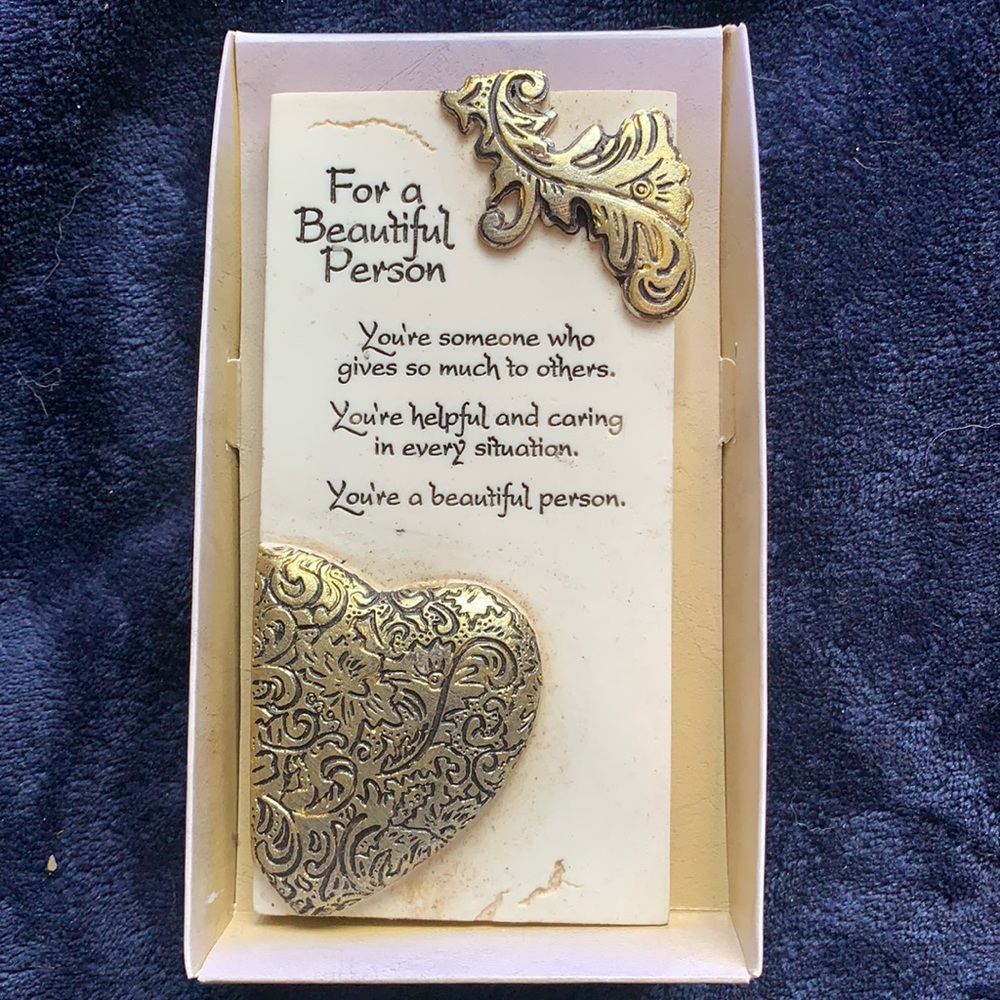 For a
Beautiful
Person
You're someone who
gives so much to others.
You're helpful and caring
in every situation.
You're a beautiful person.